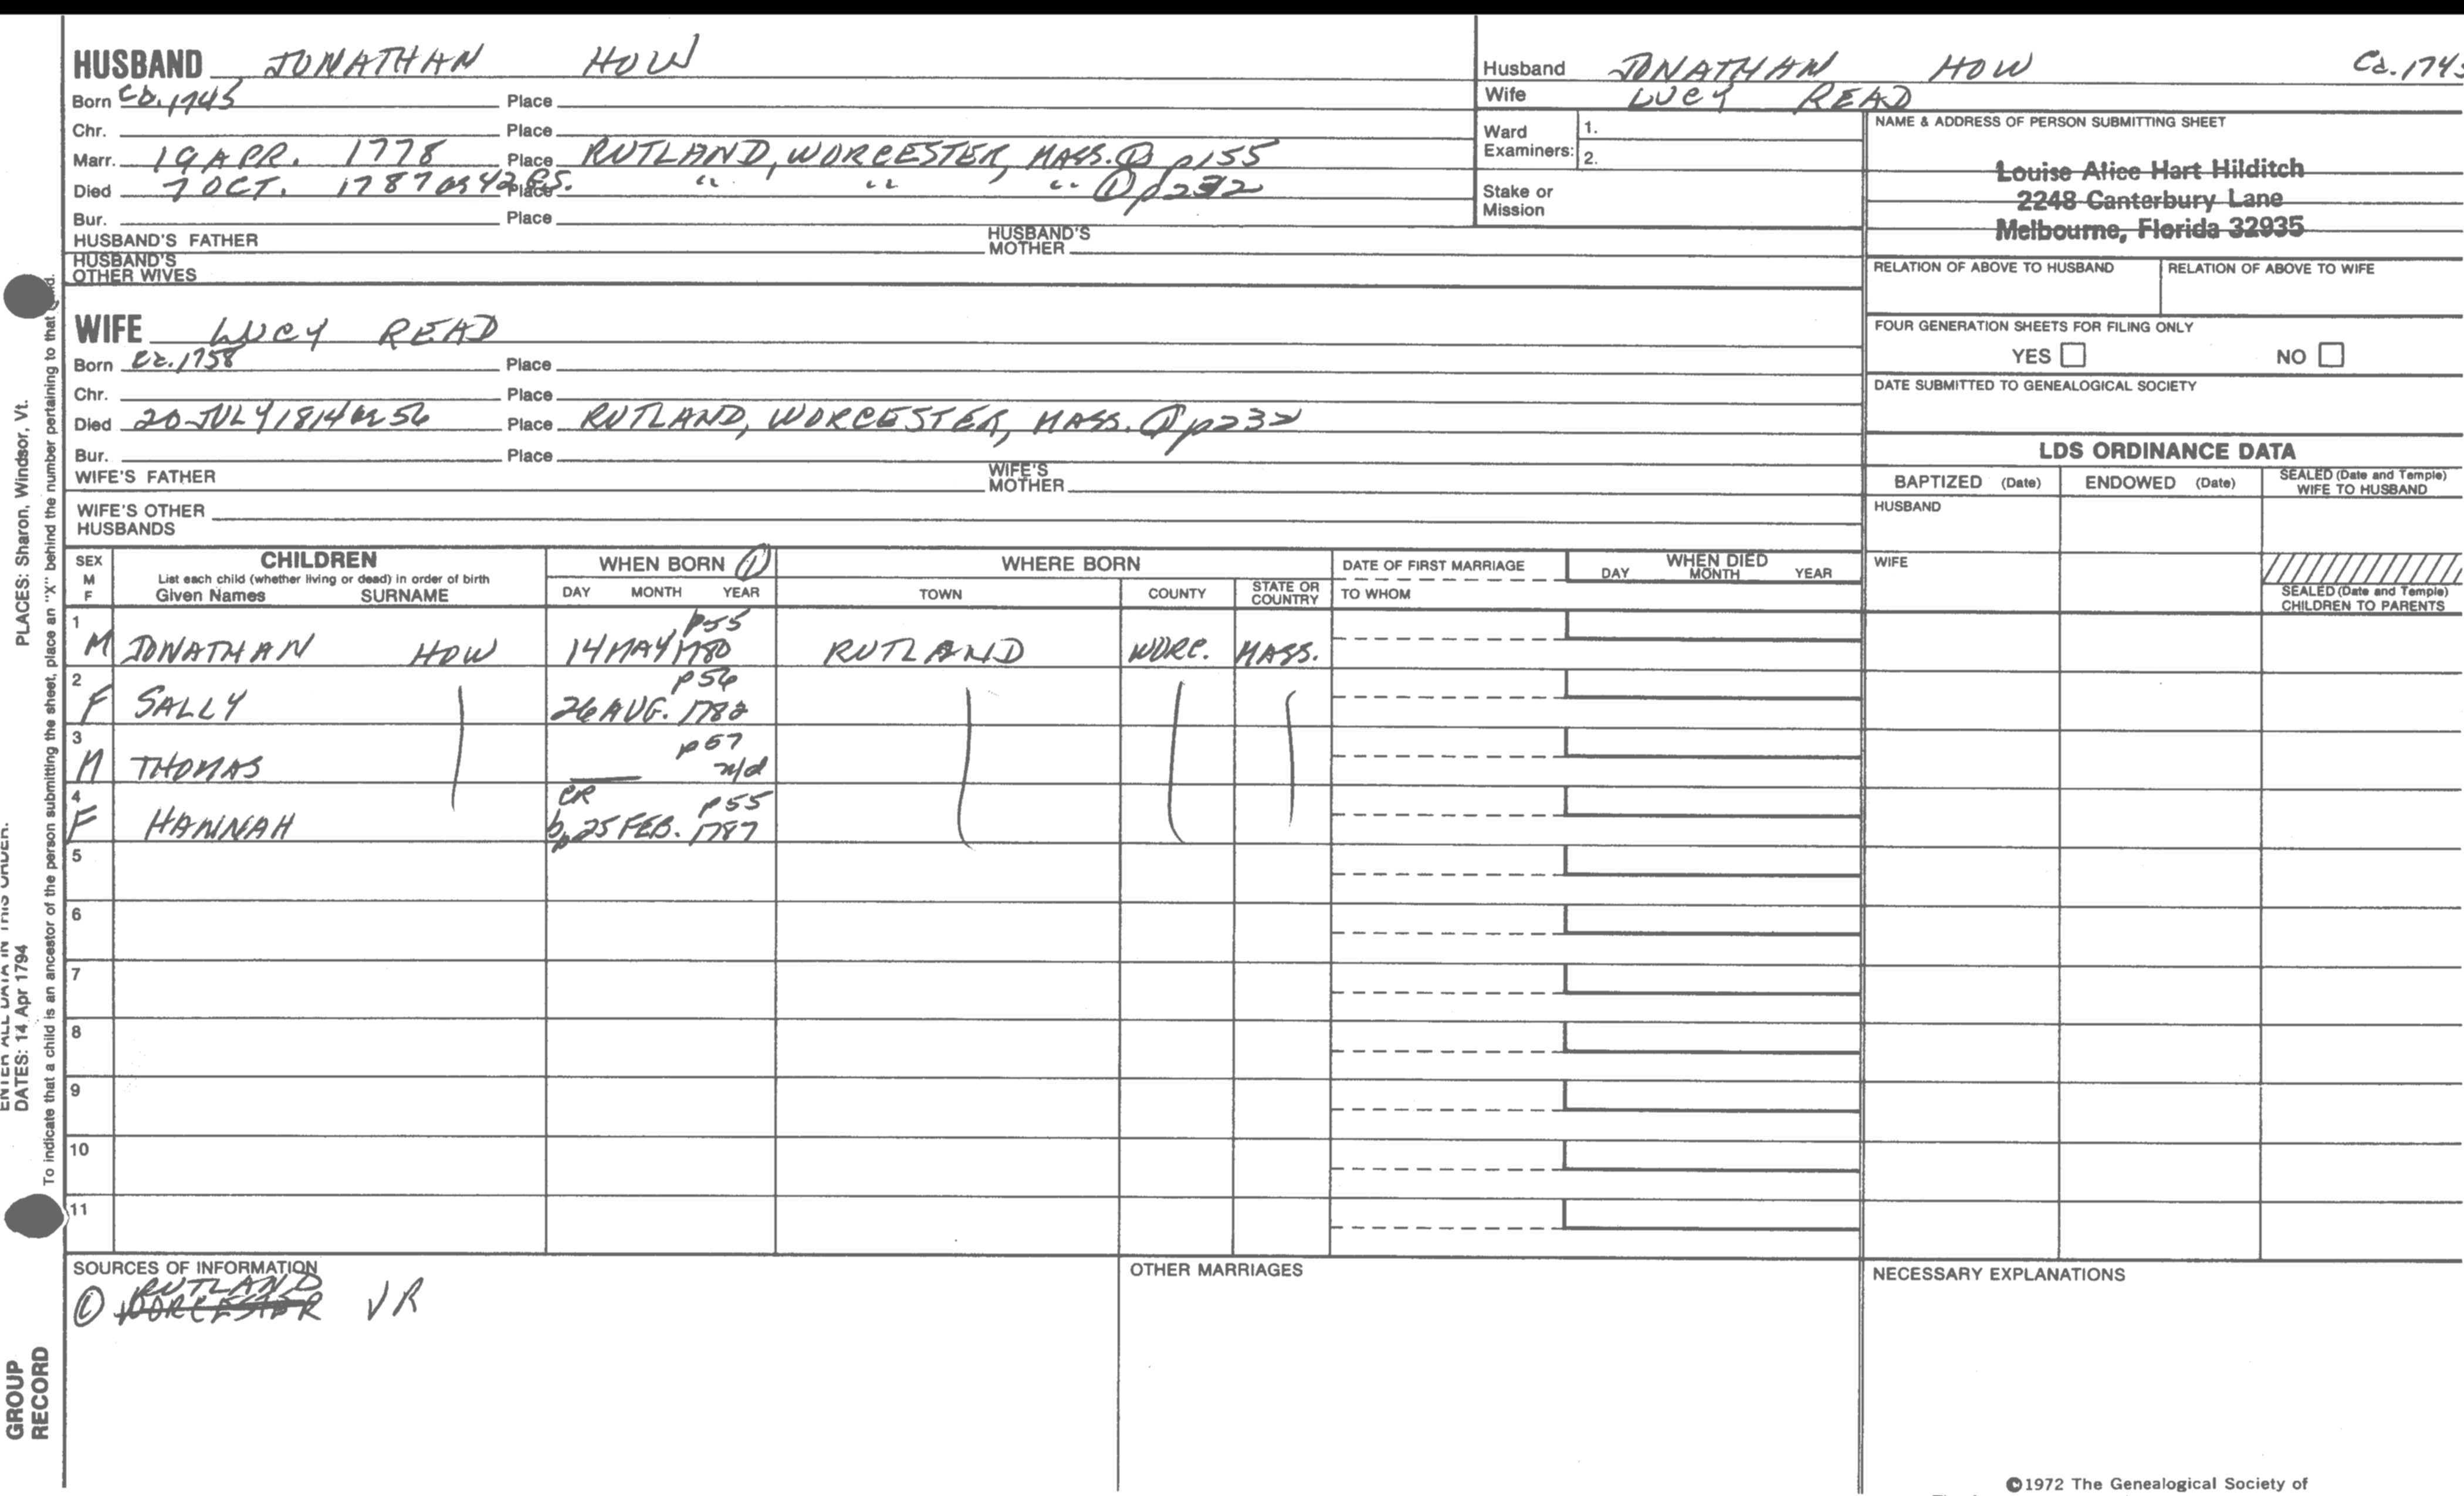 HUSBAND JONATHAN HOW
Born Ca. 1745 Place
Chr. Place
Marr. 19 APR. 1778 Place RUTLAND, WORCESTER, MASS. ① p155
Died 7 OCT. 1787 ae 42 Place " " " ① p232
Bur. Place
HUSBAND'S FATHER HUSBAND'S MOTHER
HUSBAND'S OTHER WIVES
Husband JONATHAN HOW Ca. 1745
Wife LUCY READ
Ward Examiners: 1.
2.
Stake or Mission
NAME & ADDRESS OF PERSON SUBMITTING SHEET
Louise Alice Hart Hilditch
2248 Canterbury Lane
Melbourne, Florida 32935
RELATION OF ABOVE TO HUSBAND RELATION OF ABOVE TO WIFE
FOUR GENERATION SHEETS FOR FILING ONLY
YES NO
DATE SUBMITTED TO GENEALOGICAL SOCIETY
WIFE LUCY READ
Born Ca. 1758 Place
Chr. Place
Died 20 JULY 1814 ae 56 Place RUTLAND, WORCESTER, MASS. ① p232
Bur. Place
WIFE'S FATHER WIFE'S MOTHER
WIFE'S OTHER HUSBANDS
LDS ORDINANCE DATA
BAPTIZED (Date) ENDOWED (Date) SEALED (Date and Temple) WIFE TO HUSBAND
HUSBAND
WIFE
SEALED (Date and Temple) CHILDREN TO PARENTS
SEX M F CHILDREN WHEN BORN ① WHERE BORN DATE OF FIRST MARRIAGE WHEN DIED
List each child (whether living or dead) in order of birth
Given Names SURNAME DAY MONTH YEAR TOWN COUNTY STATE OR COUNTRY TO WHOM DAY MONTH YEAR
1 p55
M JONATHAN HOW 14 MAY 1780 RUTLAND WORC. MASS.
2 p56
F SALLY 26 AUG. 1782
3 p57
M THOMAS n/d
4 CR p55
F HANNAH b. 25 FEB. 1787
5
6
7
8
9
10
11
SOURCES OF INFORMATION
RUTLAND
① WORCESTER VR
OTHER MARRIAGES
NECESSARY EXPLANATIONS
©1972 The Genealogical Society of
PLACES: Sharon, Windsor, Vt.
ENTER ALL DATA IN THIS ORDER:
DATES: 14 Apr 1794
To indicate that a child is an ancestor of the person submitting the sheet, place an "X" behind the number pertaining to that child.
GROUP
RECORD